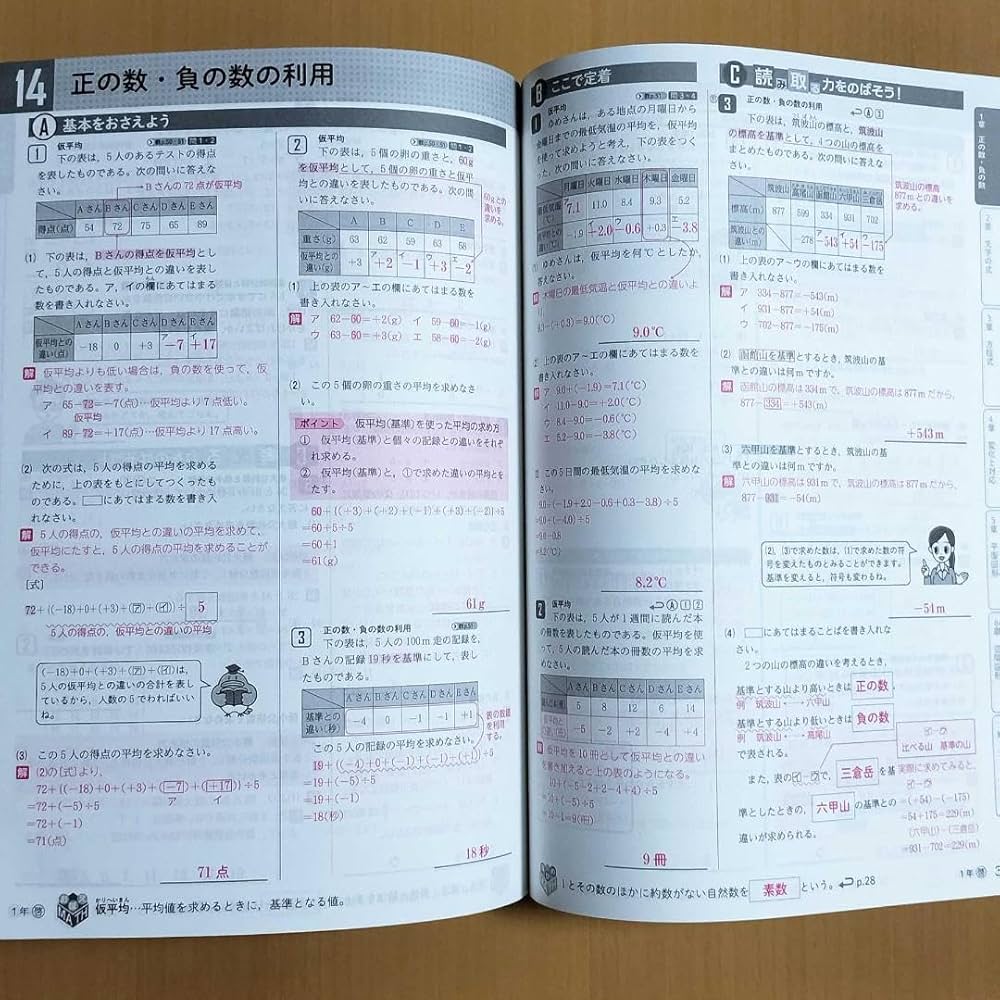 14 正の数・負の数の利用
A 基本をおさえよう
1 仮平均 教p.50~51 問1・2
下の表は，5人のあるテストの得点
を表したものである。次の問いに答えな
さい。
Bさんの72点が仮平均
Aさん Bさん Cさん Dさん Eさん
得点(点) 54 72 75 65 89
(1) 下の表は，Bさんの得点を仮平均とし
て，5人の得点と仮平均との違いを表し
たものである。ア，イの欄にあてはまる
数を書き入れなさい。
Aさん Bさん Cさん Dさん Eさん
仮平均との違い(点) -18 0 +3 ア -7 イ +17
解 仮平均よりも低い場合は，負の数を使って，仮
平均との違いを表す。
ア 65-72=-7(点)…仮平均より7点低い。
仮平均
イ 89-72=+17(点)…仮平均より17点高い。
(2) 次の式は，5人の得点の平均を求める
ために，上の表をもとにしてつくったも
のである。□にあてはまる数を書き入
れなさい。
解 5人の得点の，仮平均との違いの平均を求めて，
仮平均にたすと，5人の得点の平均を求めることが
できる。
[式]
72+{(-18)+0+(+3)+(ア)+(イ)}÷5
5人の得点の，仮平均との違いの平均
(-18)+0+(+3)+(ア)+(イ)は，
5人の仮平均との違いの合計を表し
ているから，人数の5でわればいい
ね。
(3) この5人の得点の平均を求めなさい。
解 (2)の[式]より，
72+{(-18)+0+(+3)+(-7)+(+17)}÷5
ア イ
=72+(-5)÷5
=72+(-1)
=71(点)
71点
2 仮平均 教p.50~51 問1・2
下の表は，5個の卵の重さと，60g
を仮平均として，5個の卵の重さと仮平
均との違いを表したものである。次の問
いに答えなさい。
60gとの違いを求める。
A B C D E
重さ(g) 63 62 59 63 58
仮平均との違い(g) +3 ア +2 イ -1 ウ +3 エ -2
(1) 上の表のア～エの欄にあてはまる数を
書き入れなさい。
解 ア 62-60=+2(g) イ 59-60=-1(g)
ウ 63-60=+3(g) エ 58-60=-2(g)
(2) この5個の卵の重さの平均を求めなさ
い。
ポイント 仮平均(基準)を使った平均の求め方
① 仮平均(基準)と個々の記録との違いをそれぞ
れ求める。
② 仮平均(基準)と，①で求めた違いの平均とを
たす。
60+{(+3)+(+2)+(-1)+(+3)+(-2)}÷5
=60+5÷5
=60+1
=61(g)
61g
3 正の数・負の数の利用
下の表は，5人の100m走の記録を，
Bさんの記録19秒を基準にして，表し
たものである。
Aさん Bさん Cさん Dさん Eさん
基準との違い(秒) -4 0 -1 -1 +1
表の数値を利用する。
この5人の記録の平均を求めなさい。
19+{(-4)+0+(-1)+(-1)+(+1)}÷5
=19+(-5)÷5
=19+(-1)
=18(秒)
18秒
1年 啓
MATH
仮平均…平均値を求めるときに，基準となる値。
B ここで定着
1 仮平均 問3・4
ゆめさんは，ある地点の月曜日から
金曜日までの最低気温の平均を，仮平均
を使って求めようと考え，下の表をつく
った。次の問いに答えなさい。
月曜日 火曜日 水曜日 木曜日 金曜日
ア 7.1 11.0 8.4 9.3 5.2
-1.9 イ +2.0 ウ -0.6 +0.3 エ -3.8
(1) ゆめさんは，仮平均を何℃としたか，
答えなさい。
解 木曜日の最低気温と仮平均との違いより，
9.3-(+0.3)=9.0(℃)
9.0℃
上の表のア～エの欄にあてはまる数を
書き入れなさい。
ア 9.0+(-1.9)=7.1(℃)
イ 11.0-9.0=+2.0(℃)
ウ 8.4-9.0=-0.6(℃)
エ 5.2-9.0=-3.8(℃)
この5日間の最低気温の平均を求めな
さい。
9.0+(-1.9+2.0-0.6+0.3-3.8)÷5
=9.0+(-4.0)÷5
=9.0-0.8
=8.2(℃)
8.2℃
2 仮平均 A 1 2
下の表は，5人が1週間に読んだ本
の冊数を表したものである。仮平均を使
って，5人の読んだ本の冊数の平均を求
めなさい。
Aさん Bさん Cさん Dさん Eさん
5 8 12 6 14
-5 -2 +2 -4 +4
仮平均を10冊として仮平均との違い
を書き加えると上の表のようになる。
10+(-5-2+2-4+4)÷5
=10+(-5)÷5
=10-1=9(冊)
9冊
1とその数のほかに約数がない自然数を 素数 という。 p.28
C 読み取る力をのばそう！
3 正の数・負の数の利用 A 3
下の表は，筑波山の標高と，筑波山
の標高を基準として，4つの山の標高を
まとめたものである。次の問いに答えな
さい。
筑波山の標高877mとの違いを求める。
筑波山 高尾山 函館山 六甲山 三倉岳
標高(m) 877 599 334 931 702
筑波山との違い(m) -278 ア -543 イ +54 ウ -175
(1) 上の表のア～ウの欄にあてはまる数を
書き入れなさい。
解 ア 334-877=-543(m)
イ 931-877=+54(m)
ウ 702-877=-175(m)
(2) 函館山を基準とするとき，筑波山の基
準との違いは何mですか。
解 函館山の標高は334mで，筑波山の標高は877mだから，
877-334=+543(m)
+543m
(3) 六甲山を基準とするとき，筑波山の基
準との違いは何mですか。
解 六甲山の標高は931mで，筑波山の標高は877mだから，
877-931=-54(m)
(2)，(3)で求めた数は，(1)で求めた数の符
号を変えたものとみることができます。
基準を変えると，符号も変わるね。
-54m
(4) □にあてはまることばを書き入れな
さい。
2つの山の標高の違いを考えるとき，
基準とする山より高いときは 正の数，
例 筑波山 → 六甲山
基準とする山より低いときは 負の数
例 筑波山 → 高尾山
で表される。
比べる山 基準の山
また，表の イ-ウ で， 三倉岳 を基
準としたときの， 六甲山 の基準との
違いが求められる。
実際に求めてみると，
イ-ウ
=(+54)-(-175)
=54+175=229(m)
(六甲山)-(三倉岳)
=931-702=229(m)
1年 啓
1章 正の数・負の数
2章 文字の式
3章 方程式